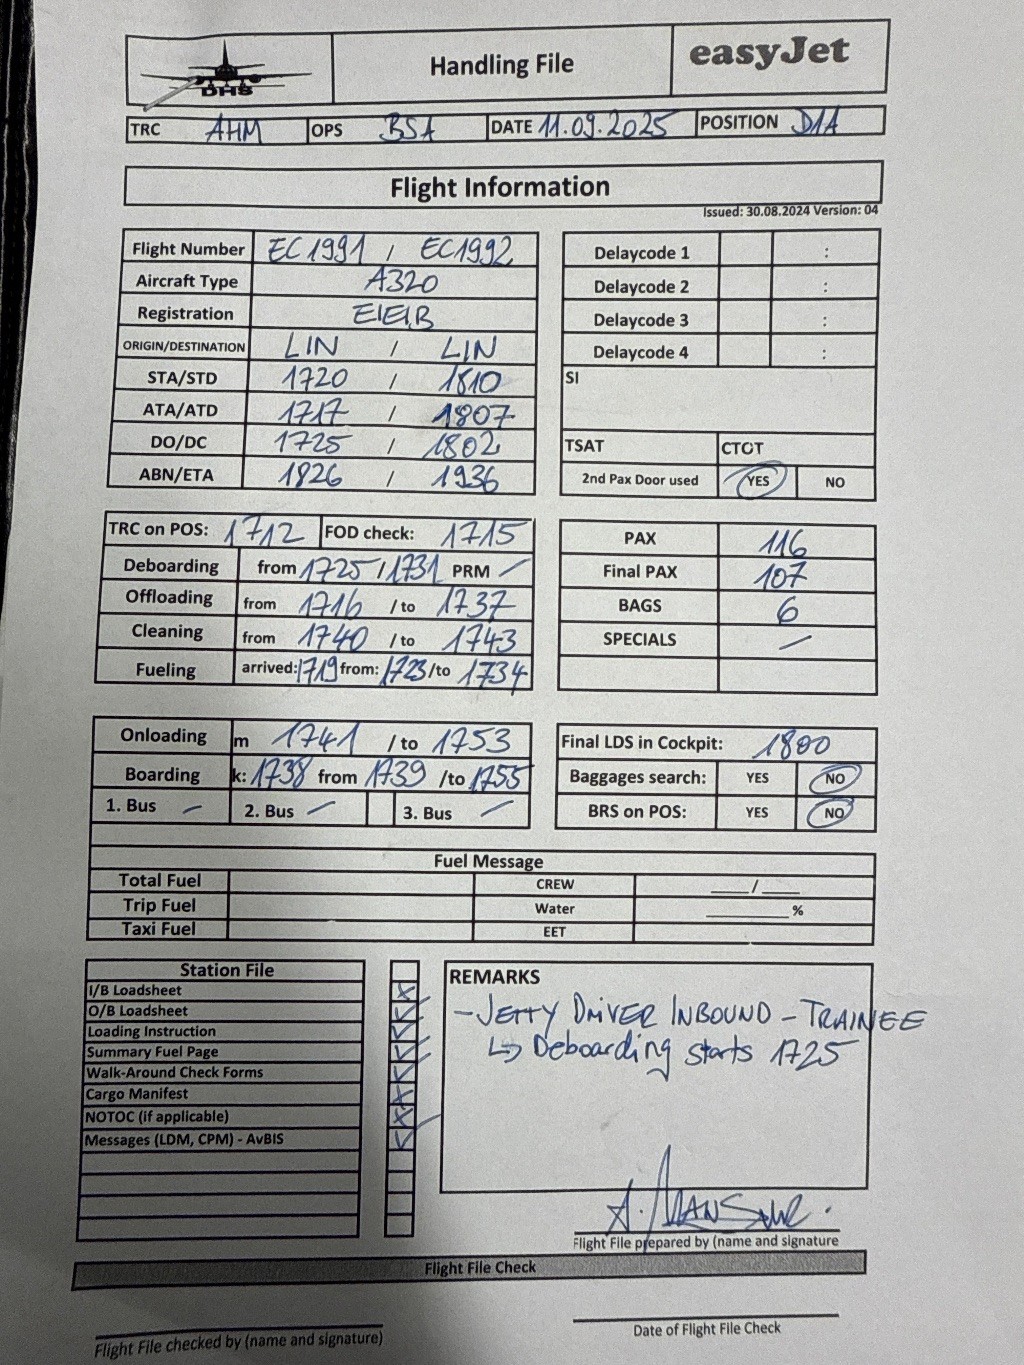 DHS
Handling File
easyJet
TRC AHM OPS BSA DATE 11.09.2025 POSITION D1A
Flight Information
Issued: 30.08.2024 Version: 04
Flight Number EC1991 / EC1992
Aircraft Type A320
Registration
ORIGIN/DESTINATION LIN / LIN
STA/STD 1720 / 1810
ATA/ATD 1717 / 1807
DO/DC 1725 / 1802
ABN/ETA 1826 / 1936
Delaycode 1 :
Delaycode 2 :
Delaycode 3 :
Delaycode 4 :
SI
TSAT CTOT
2nd Pax Door used YES NO
TRC on POS: 1712 FOD check: 1715
Deboarding from 1725 / 1731 PRM /
Offloading from 1716 / to 1737
Cleaning from 1740 / to 1743
Fueling arrived: 1719 from: 1723 /to 1734
PAX 116
Final PAX 107
BAGS 6
SPECIALS /
Onloading m 1741 / to 1753
Boarding k: 1738 from 1739 /to 1755
1. Bus – 2. Bus / 3. Bus /
Final LDS in Cockpit: 1800
Baggages search: YES NO
BRS on POS: YES NO
Fuel Message
Total Fuel CREW ___/___
Trip Fuel Water ________%
Taxi Fuel EET
Station File
I/B Loadsheet
O/B Loadsheet
Loading Instruction
Summary Fuel Page
Walk-Around Check Forms
Cargo Manifest
NOTOC (if applicable)
Messages (LDM, CPM) - AvBIS
REMARKS
- JETTY DRIVER INBOUND - TRAINEE
↳ Deboarding starts 1725
Flight File prepared by (name and signature
Flight File Check
Flight File checked by (name and signature)
Date of Flight File Check